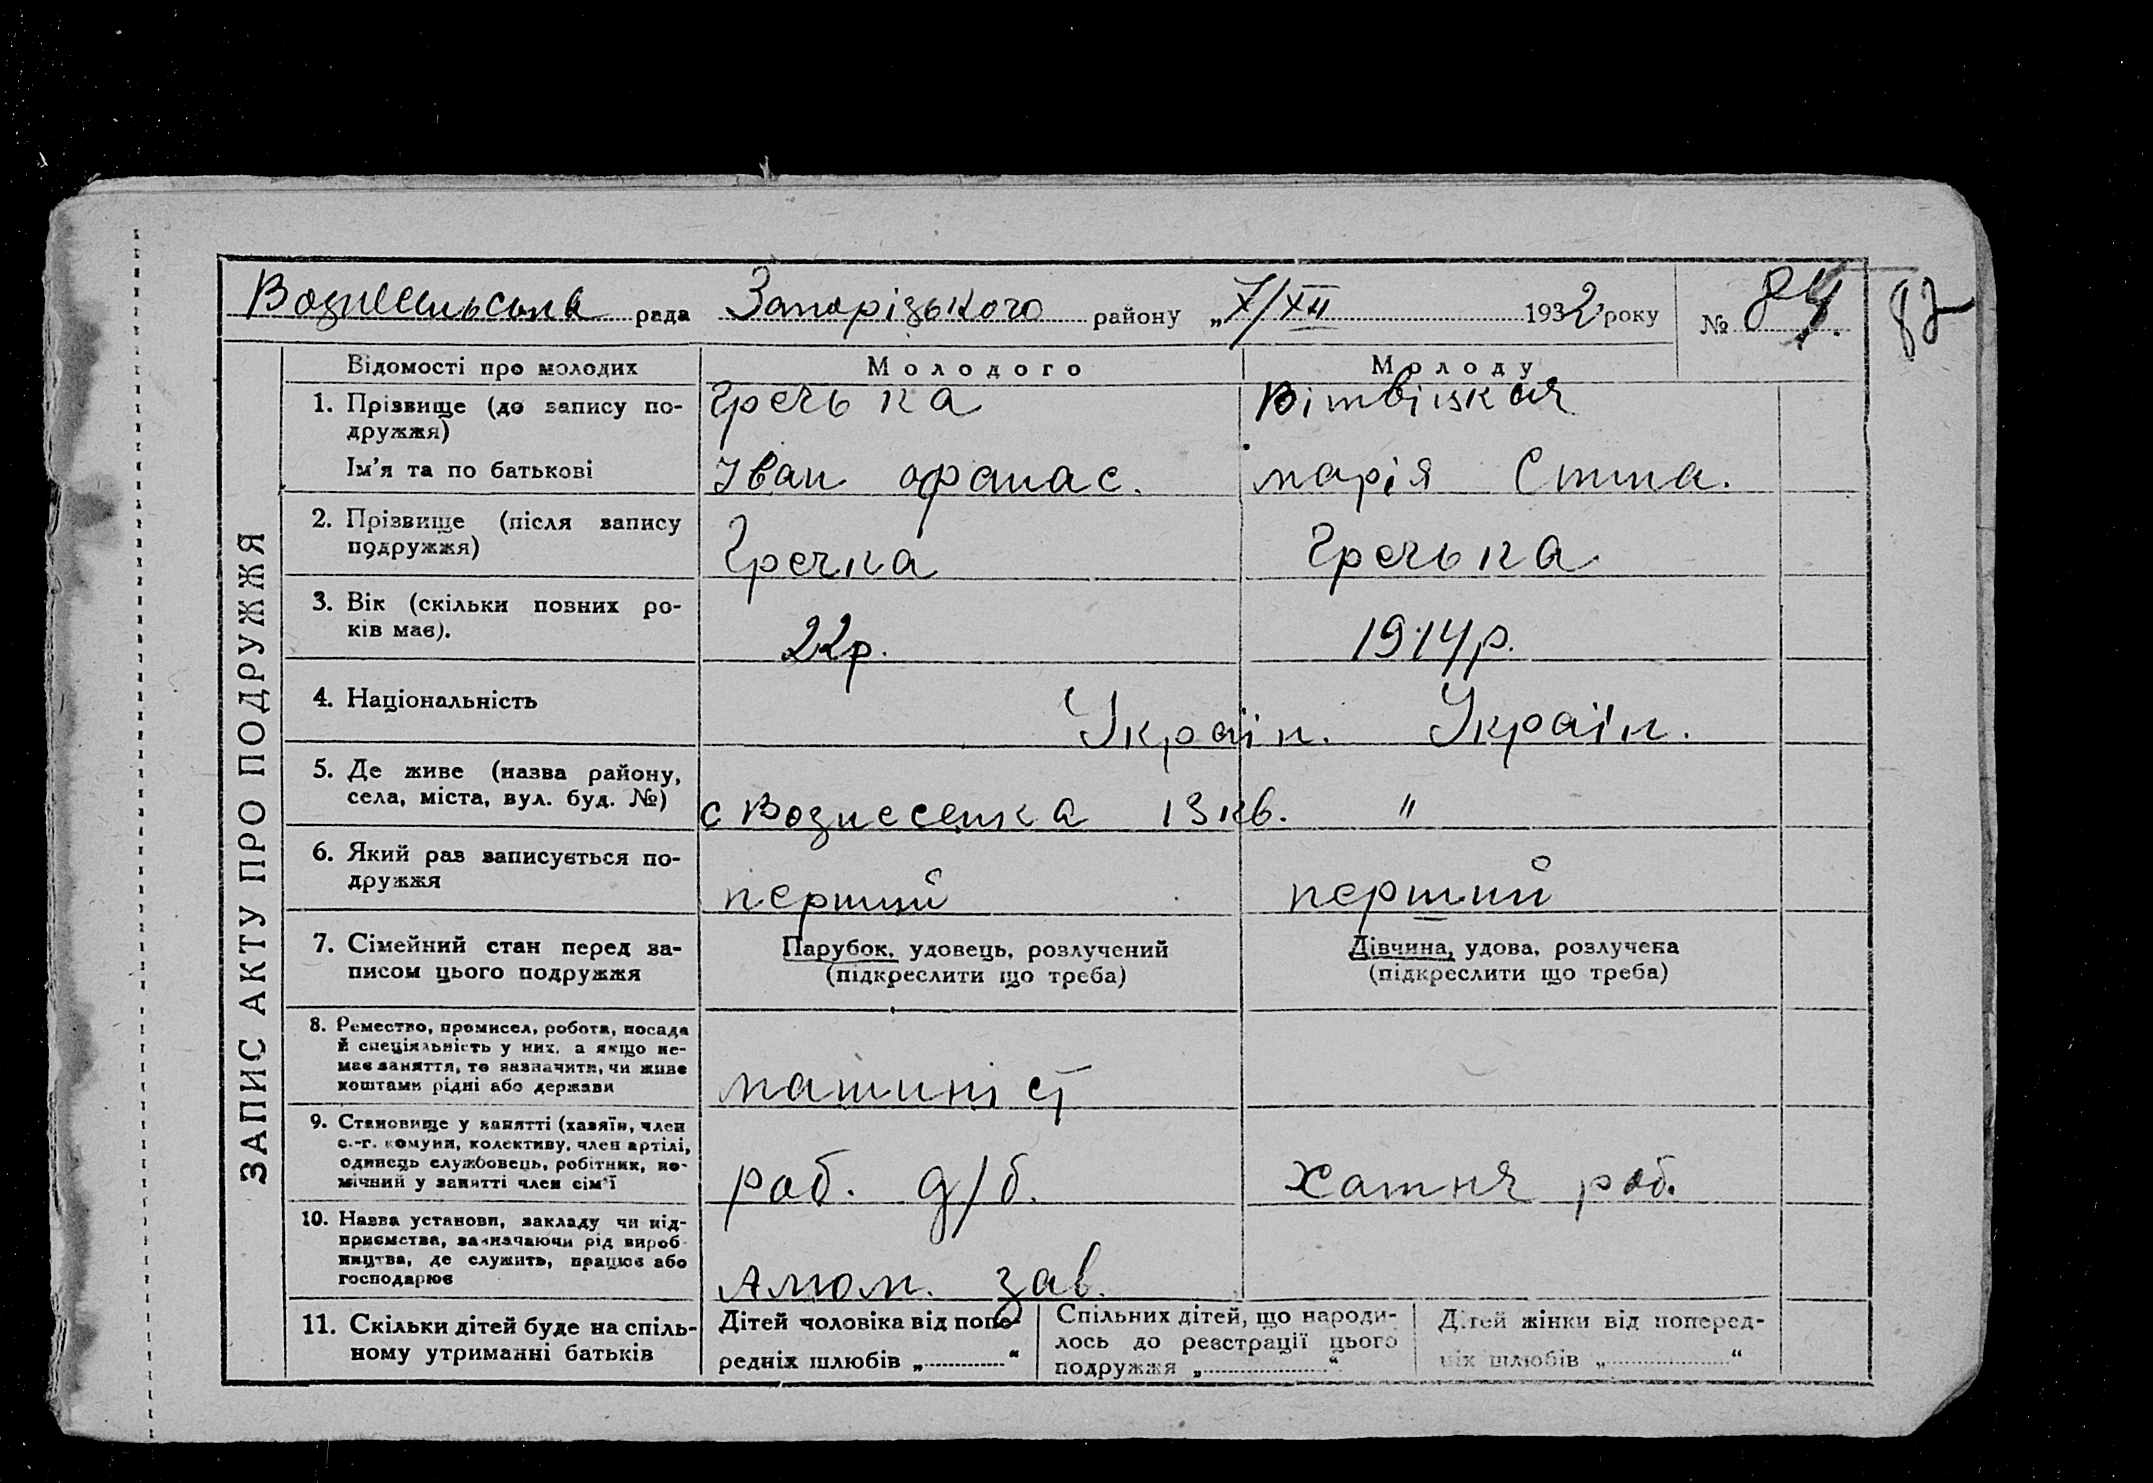 Вознесенська рада Запорізького району „7/XII 1932 року № 84.
82
ЗАПИС АКТУ ПРО ПОДРУЖЖЯ
Відомості про молодих Молодого Молоду
1. Прізвище (до запису по-
дружжя) Гречька Вітвіцкая
Ім'я та по батькові Іван афанас. марія
2. Прізвище (після запису
подружжя) Гречка Гречька
3. Вік (скільки повних ро-
ків має). 22р. 1914р.
4. Національність Україн. Україн.
5. Де живе (назва району,
села, міста, вул. буд. №) с Вознесенка 13 кв. "
6. Який раз записується по-
дружжя перший перший
7. Сімейний стан перед за-
писом цього подружжя
Парубок, удовець, розлучений
(підкреслити що треба)
Дівчина, удова, розлучена
(підкреслити що треба)
8. Ремество, промисел, робота, посада
й спеціяльність у них, а якщо не-
має заняття, то зазначити, чи живе
коштами рідні або держави машиніст
9. Становище у занятті (хазяїн, член
с.-г. комуни, колективу, член артілі,
одинець службовець, робітник, по-
мічний у занятті член сім'ї роб. д/б. хатня роб.
10. Назва установи, закладу чи під-
приємства, зазначаючи рід вироб-
ництва, де служить, працює або
господарює Алюм. зав.
11. Скільки дітей буде на спіль-
ному утриманні батьків
Дітей чоловіка від попе-
редніх шлюбів „ “
Спільних дітей, що народи-
лось до реєстрації цього
подружжя „ “
Дітей жінки від поперед-
ніх шлюбів „ “